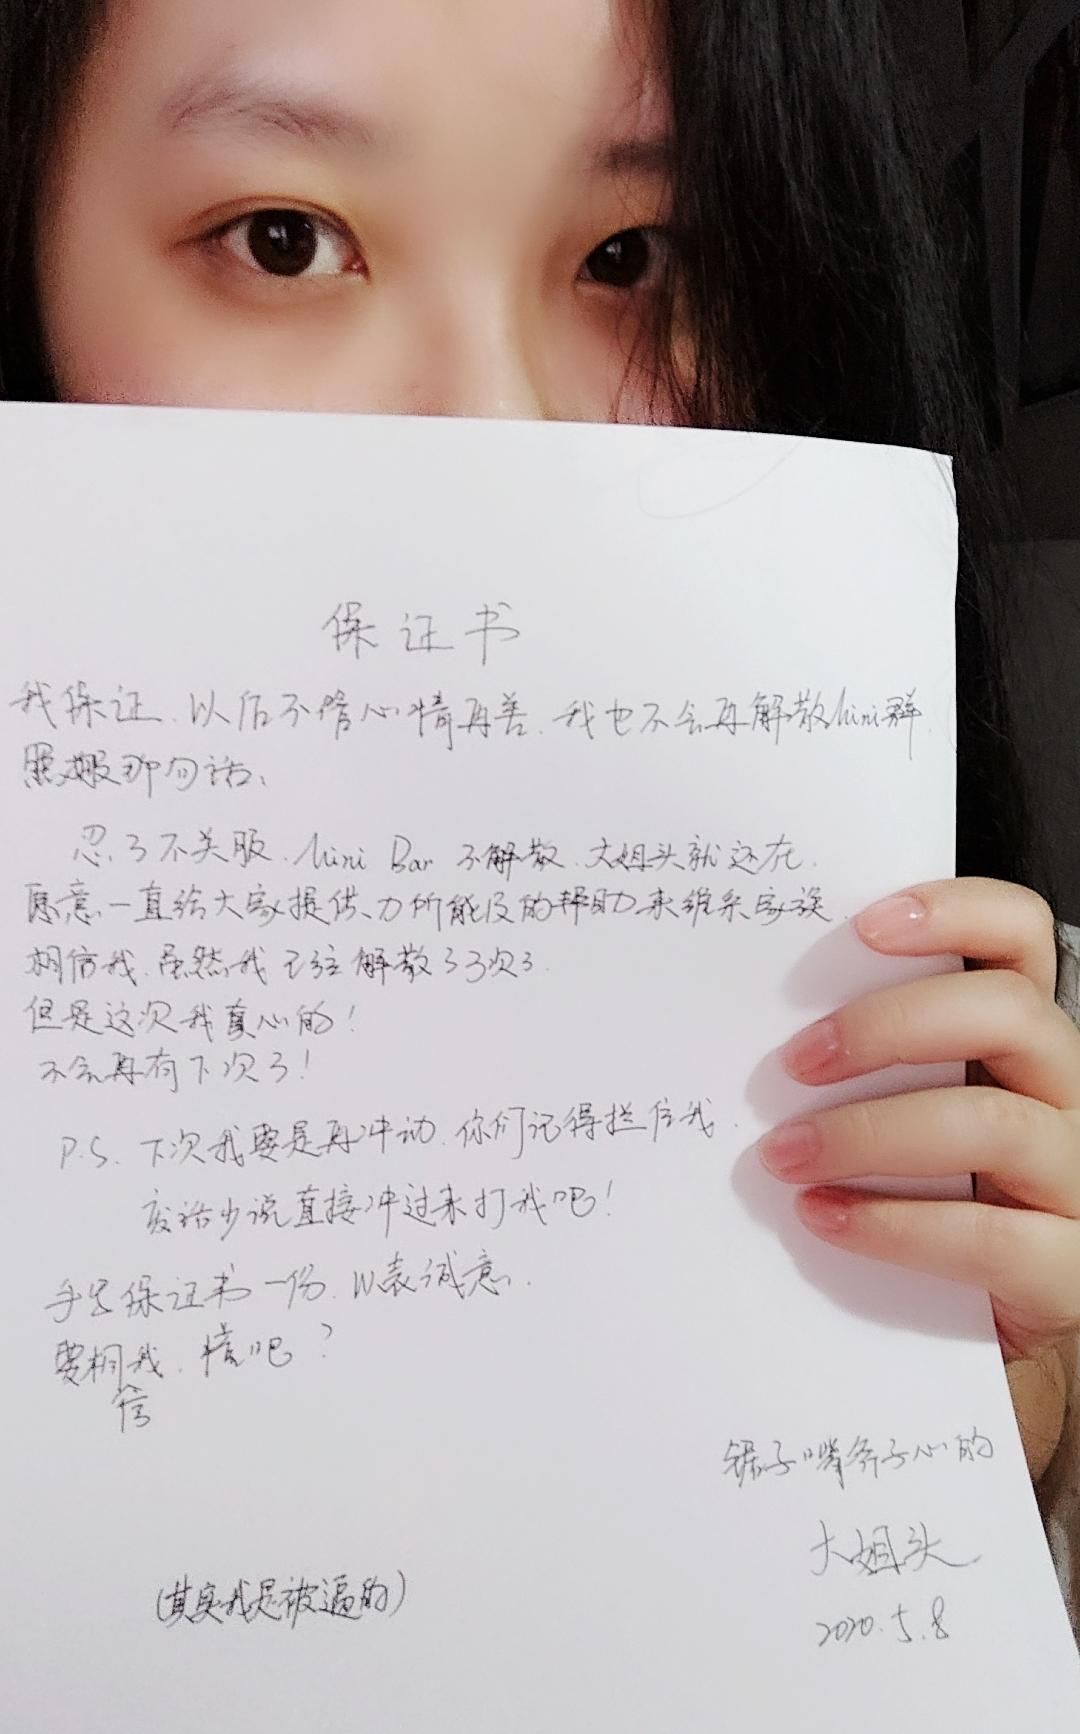 保证书
我保证、以后不管心情再差、我也不会再解散Mini群、
照搬那句话、
忍了不关服、Mini Bar 不解散、大姐头就还在、
愿意一直给大家提供、力所能及的帮助、来维系家族、
相信我、虽然我已经解散了3次了、
但是这次我真心的！
不会再有下次了！
P.S. 下次我要是再冲动、你们记得拦住我、
废话少说直接冲过来打我吧！
手写保证书一份、以表诚意、
要相信我、情吧？
锯子嘴斧子心的
大姐头
2020.5.8
(其实我是被逼的)